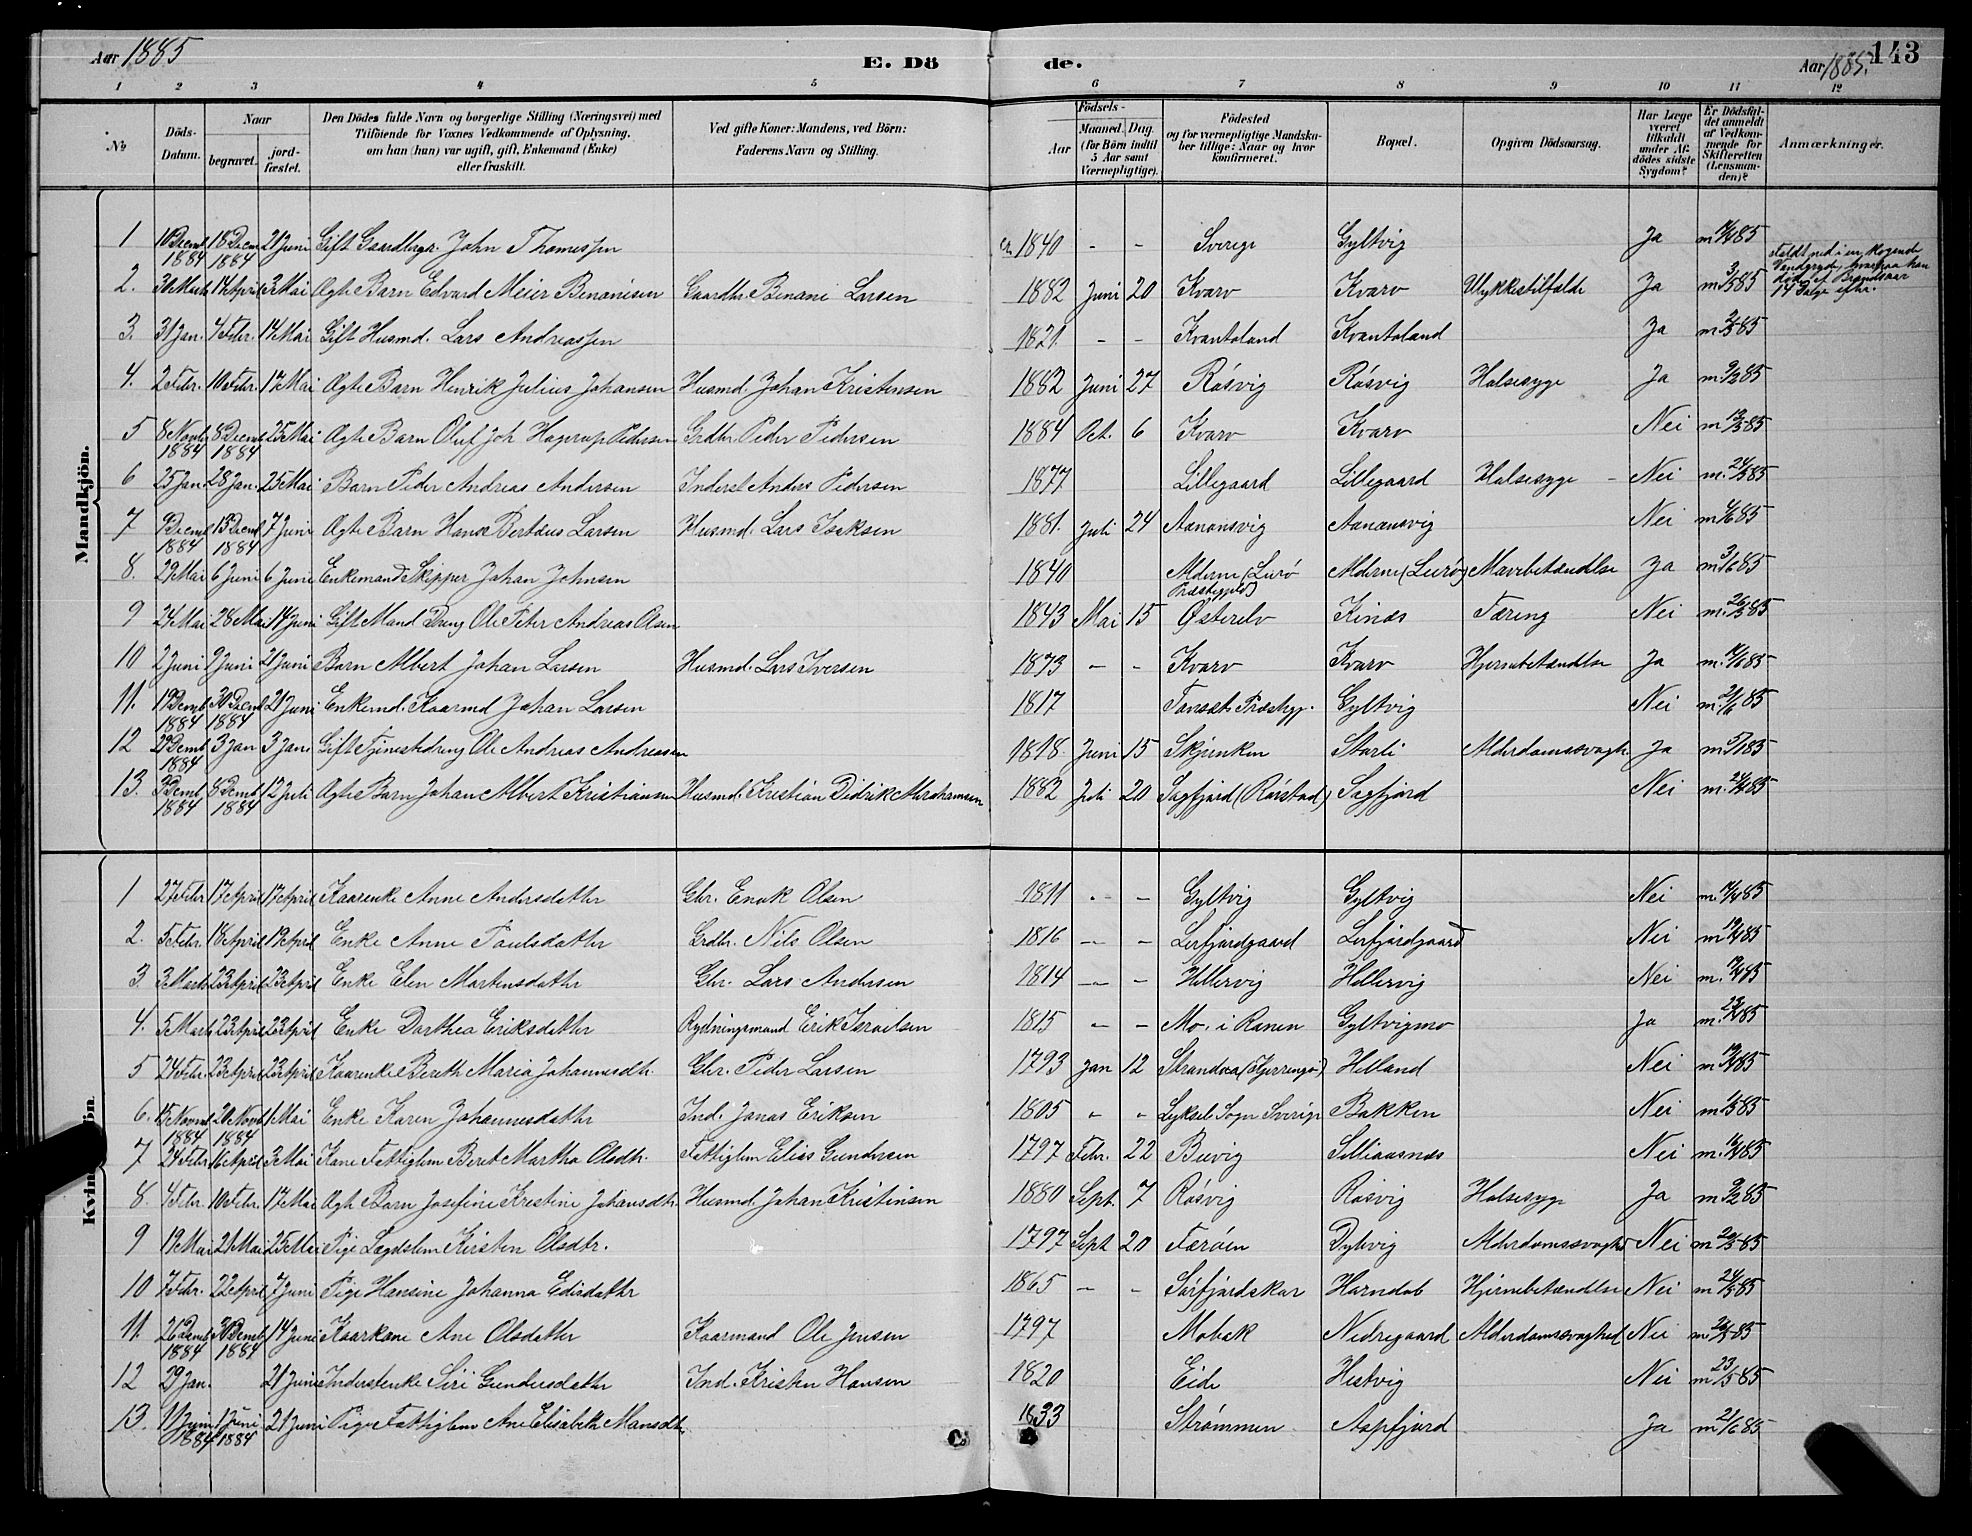 Aar 1885 E. Dö de. Aar 1885. 143
1 2 3 4 5 6 7 8 9 10 11 12
No
Döds-Datum.
Naar
begravet.
jord-fæstet.
Den Dödes fulde Navn og borgerlige Stilling (Næringsvei) med
Tilföiende for Voxnes Vedkommende af Oplysning,
om han (hun) var ugift, gift, Enkemand (Enke)
eller fraskilt.
Ved gifte Koner: Mandens, ved Börn:
Faderens Navn og Stilling.
Födsels-
Aar
Maaned. Dag.
(for Börn indtil
5 Aar samt
Værnepligtige).
Födested
og for værnepligtige Mandska-
ber tillige: Naar og hvor
konfirmeret.
Bopæl.
Opgiven Dödsaarsag.
Har Læge
været
tilkaldt
under Af-
dödes sidste
Sygdom?
Er Dödsfal-
det anmeldt
af Vedkom-
mende for
Skifteretten
(Lensman-
den)?
Anmærkninger.
Mandkjön.
1 10 Decmb 1884 18 Decm 1884 21 Juni Gift Gaardbrgr. John Thomessen 1840 - - Sverige Gyltvig Ja
2. 30 Marts 14 April 3 Mai Ægte Barn Edvard Meier Benonisen Gaardbr. Benoni Larsen 1882 Juni 20 Kvarv Kvarv Ulykkestilfælde Ja Faldt ned i en kogende Vandgryde, hvorpaa han døde af Brandsaar 14 Dage efter.
3. 31 Jan. 4 Febr. 14 Mai Gift Husmd. Lars Andreassen 1821 - - Kvantoland Kvantoland Ja
4. 2 Febr. 10 Febr. 17 Mai Ægte Barn Henrik Julius Johansen Husmd. Johan Kristensen 1882 Juni 27 Røsvig Røsvig Halsesyge Ja
5 8 Novbr 1884 8 Decmb 1884 25 Mai Ægte Barn Oluf Joh. Hagerup Pedersen Grdbr. Peder Pedersen 1884 Oct. 6 Kvarv Kvarv Nei
6 25 Jan. 28 Jan. 25 Mai Barn Peder Andreas Andersen Inderst Anders Pedersen 1877 Lillegaard Lillegaard Halsesyge - Nei
7 Decmb 1884 15 Decmb 1884 7 Juni Ægte Barn Hans Bertæus Larsen Husmd. Lars Isaksen 1881. Juli 24 Aanonsvig Aanonsvig Nei
8. 29 Mai 6 Juni 6 Juni Enkemand Skipper Johan Johnsen 1840 Alderne (Lurø Præstegjeld) Alderne (Lurø) Mavebetændelse Ja
9 24 Mai 28 Mai 14 Juni Gift Mand Dreng Ole Peter Andreas Olsen 1843 Mai 15 Østerelv Kines Tæring Nei
10 2 Juni 9 Juni 21 Juni Barn Albert Johan Larsen Husmd. Lars Iversen 1873 - - Kvarv Kvarv Hjernebetændelse Ja
11. 19 Decmb. 1884 30 Decmb 1884 21 Juni Enkemd. Kaarmd Johan Larsen 1817 Præstegj. Gyltvig Nei
12 29 Decmb. 1884 3 Jan 3 Jan Gift Tjenestedreng Ole Andreas Andreassen 1818. Juni 15 Skjunken Storli Alderdomssvagh. Ja
13. Decmb. 1884 8 Decmb 1884 12 Juli Ægte Barn Johan Albert Kristiansen Husmd. Kristian Didrik Abrahamsen 1882 Juli 20 Sagfjord (Rørstad) Sagfjord Nei
Kvindekjön.
1 27 Febr 17 April 17 April Kaarenke Anne Andersdatter Gbr. Enok Olsen 1811 - - Gyltvig Gyltvig Nei
2. 5 Febr. 18 April 19 April Enke Anne Paulsdatter Grdbr. Nils Olsen 1816 - - Lerfjordgaard Lerfjordgaard Nei
3. 3 Marts 23 April 23 April Enke Elen Martensdatter Gbr. Lars Andersen 1814 - - Hellervig Hellervig Nei
4. 5 Marts 23 April 23 April Enke Dorthea Eriksdatter Rydningsmand Erik Israilsen 1815 - - Mo. i Ranen Gyltvigmo Ja
5 24 Febr. 23 April 23 April Kaarenke Bereth Maria Johannesdtr. Gbr. Peder Larsen 1793 Jan 12 Strandaa (Kjerringø) Helland Nei
6. 15 Novmb 1884 20 Novb 1884 1 Mai Enke Karen Johannesdatter Ind. Jonas Eriksen 1805 - - Lyksele Sogn Sverige Bakken Nei
7 24 Febr 16 April 3 Mai Kone Fattiglem Beret Martha Olsdtr. Fattiglem Elias Gundersen 1797 Febr. 22 Buvig Silliaasnæs Nei
8. 4 Febr. 10 Febr. 17 Mai Ægte Barn Josefine Kristine Johansdtr. Husmd. Johan Kristensen 1880 Sept. 7 Røsvig Røsvig Halsesyge Ja
9 19 Mai 21 Mai 25 Mai Pige Lægdslem Kirsten Olsdtr. 1797 Sept 20 Færøen Dybvig Alderdomssvaghed Nei
10 7 Febr. 22 April 7 Juni Pige Hansine Johanna Edisdatter 1865 - - Sørfjordskar Horndal Hjernebetændelse Nei
11. 26 Decmb 1884 30 Decmb 1884 14 Juni Kaarkone Ane Olsdatter Kaarmand Ole Jensen 1797 Mobæk Nedregaard Alderdomssvaghed Nei
12 29 Jan. 21 Juni Inderstenke Siri Gundersdatter Ind. Kristen Hansen 1820 Eide Hestvig Nei
13. 1 Juni 1884 1 Juni 1884 21 Juni Pige Fattiglem Ane Elisabeth Mansdtr. 1833 Strømmen Aapfjord Ja